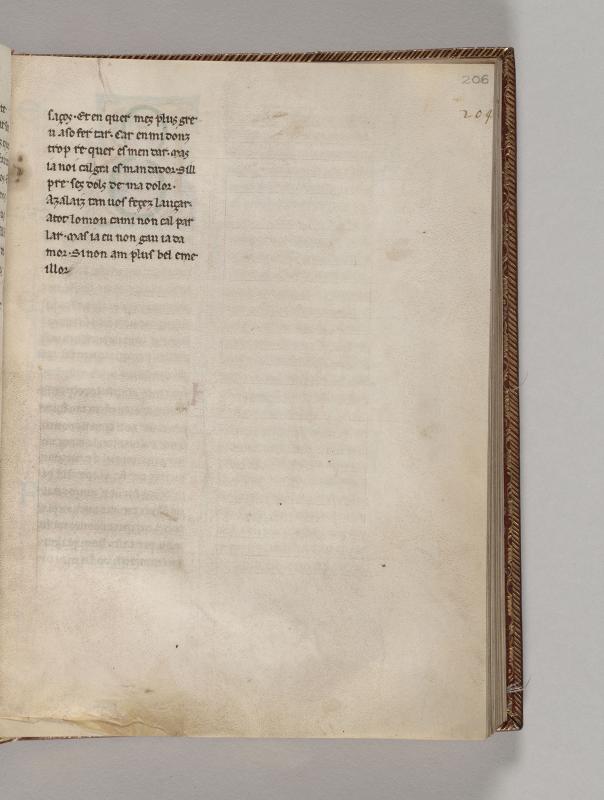 206
204
saços· Et en quer mes plus gre
u aso fer tar· Car en mi donz
trop re quer es men dar· mas
ia noi cal gra es man dador· Sill
pre ses dolz de ma dolor·
Azalaiz tan uos fezez lauzar·
atot lo mon cami non cal par
lar· mas ia eu non gau ia da
mor· Si non am plus bel eme
illor